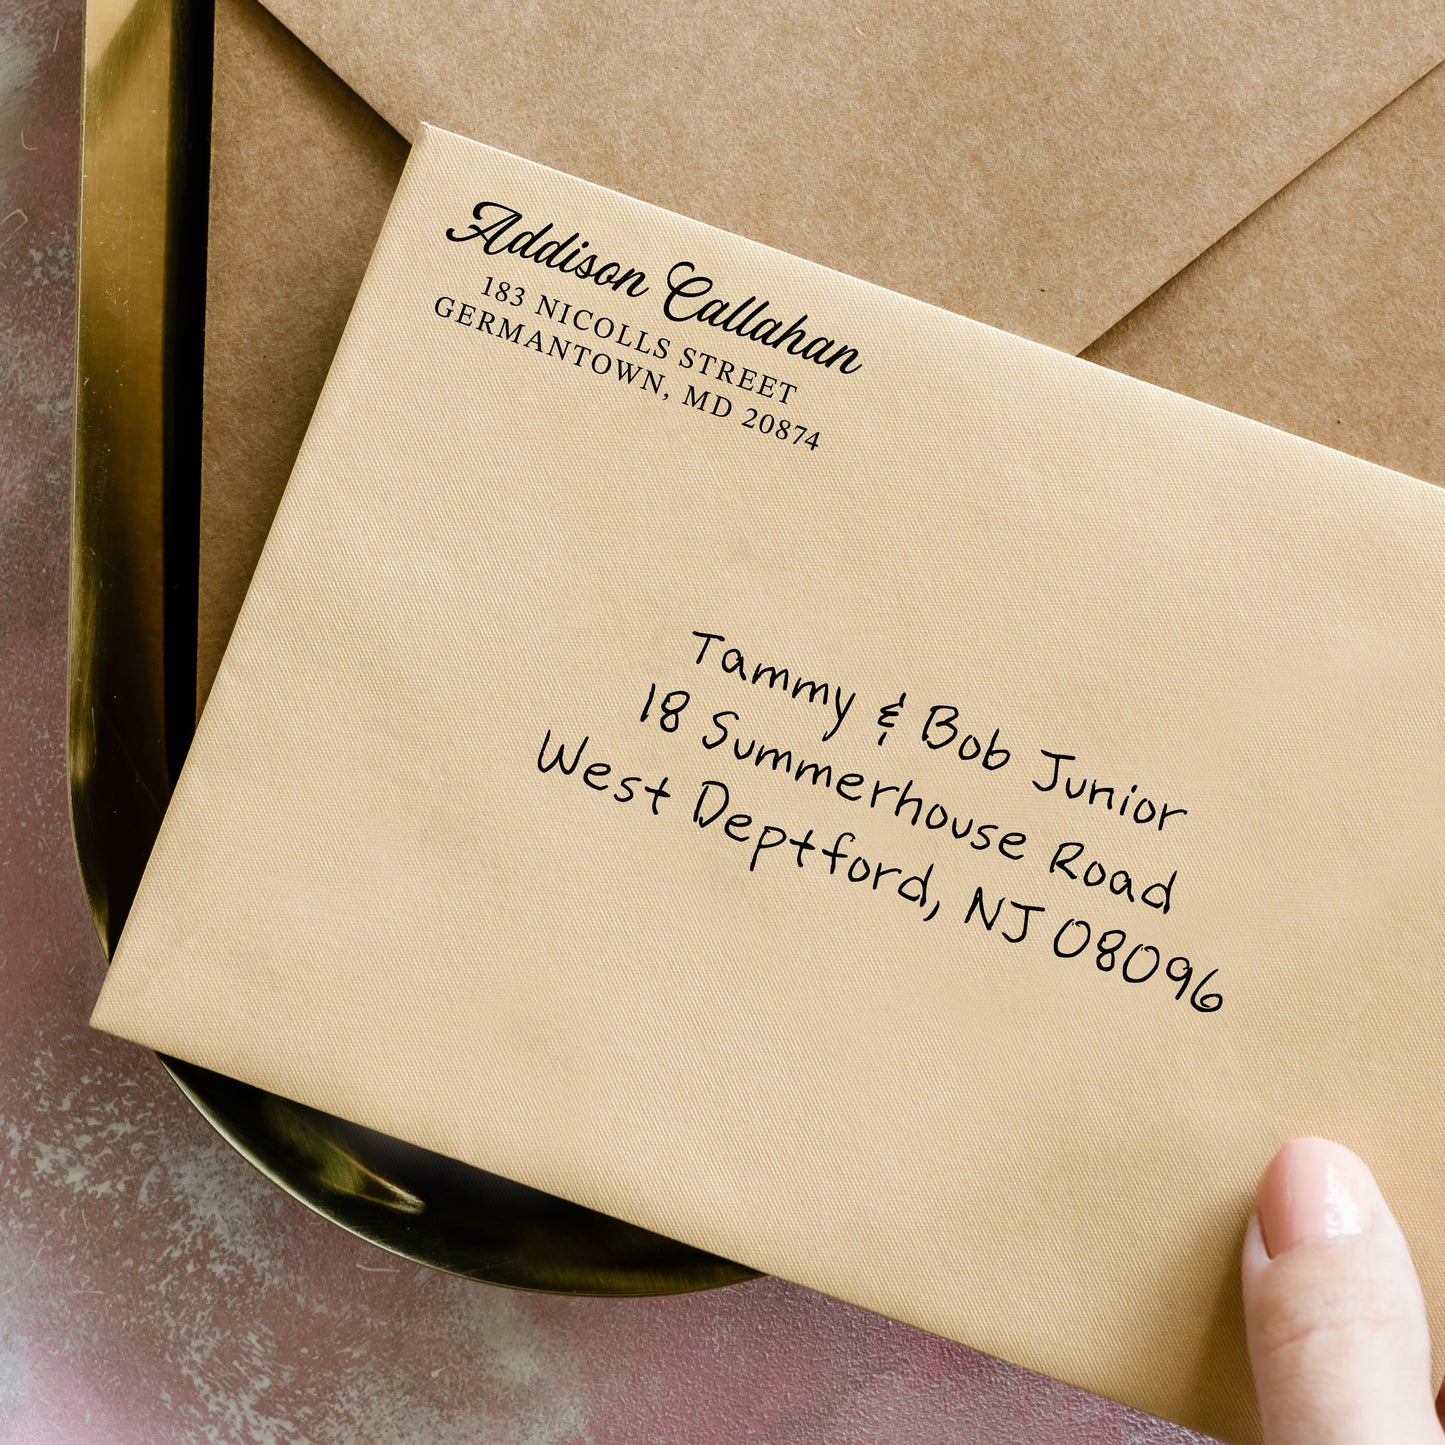 Addison Callahan
183 NICOLLS STREET
GERMANTOWN, MD 20874
Tammy & Bob Junior
18 Summerhouse Road
West Deptford, NJ 08096